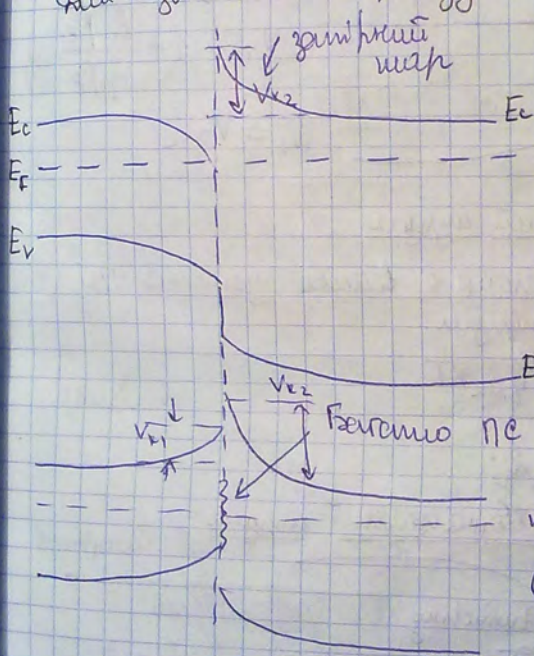 запірний
шар
Vк2
Ec
Ec
EF
EV
E
Vк2
Vк1
Багато ПС